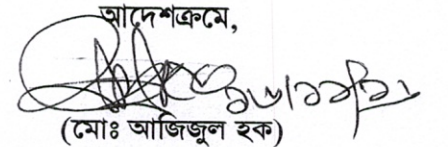 আদেশক্রমে,
(মোঃ আজিজুল হক)